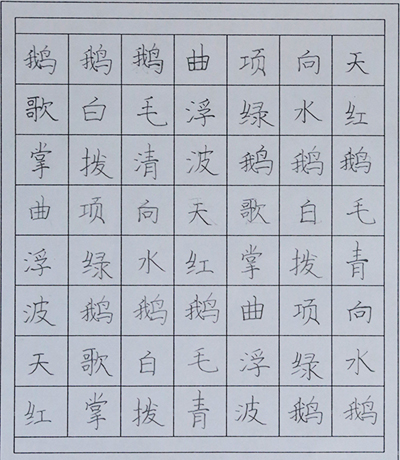 鹅鹅鹅曲项向天
歌白毛浮绿水红
掌拨清波鹅鹅鹅
曲项向天歌白毛
浮绿水红掌拨青
波鹅鹅鹅曲项向
天歌白毛浮绿水
红掌拨青波鹅鹅